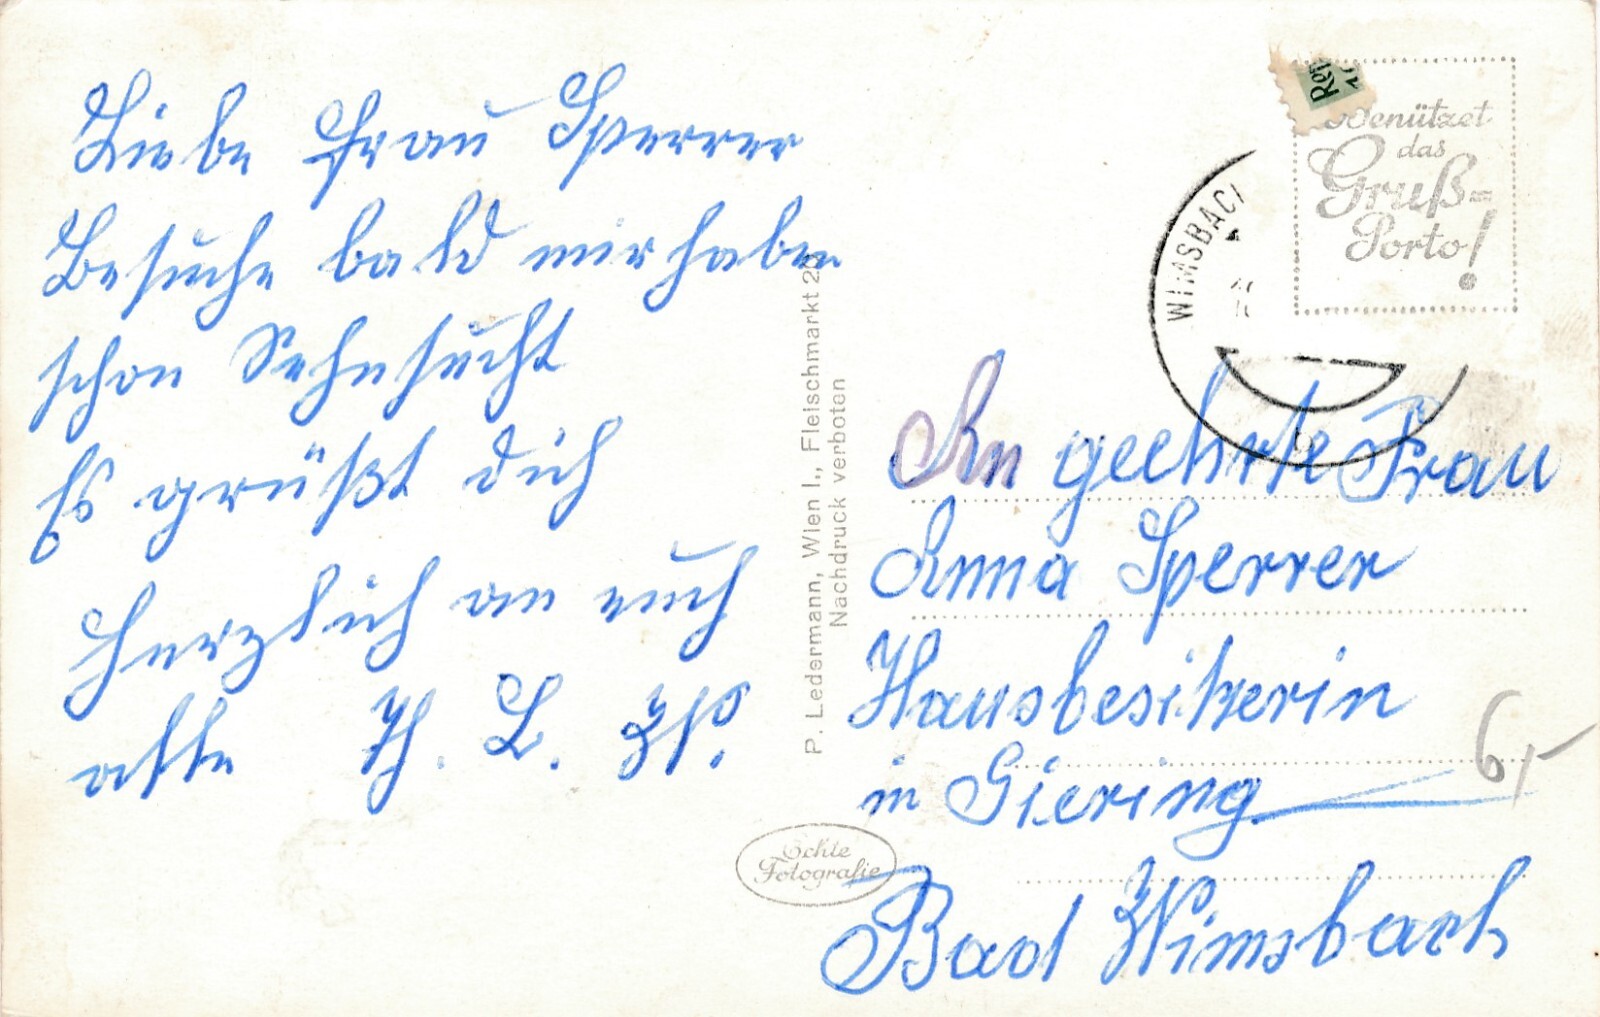 Liebe Frau Sperrer
Besuche bald wir haben
schon Sehnsucht
Es grüßt dich
herzlich an euch
alle Th. L. W.
P. Ledermann, Wien I., Fleischmarkt 20
Nachdruck verboten
Echte
Fotografie
Benützet
das
Gruß=
Porto!
WIMSBACH
An geehrte Frau
Anna Sperrer
Hausbesitzerin
in Giering
Bad Wimsbach
6,-